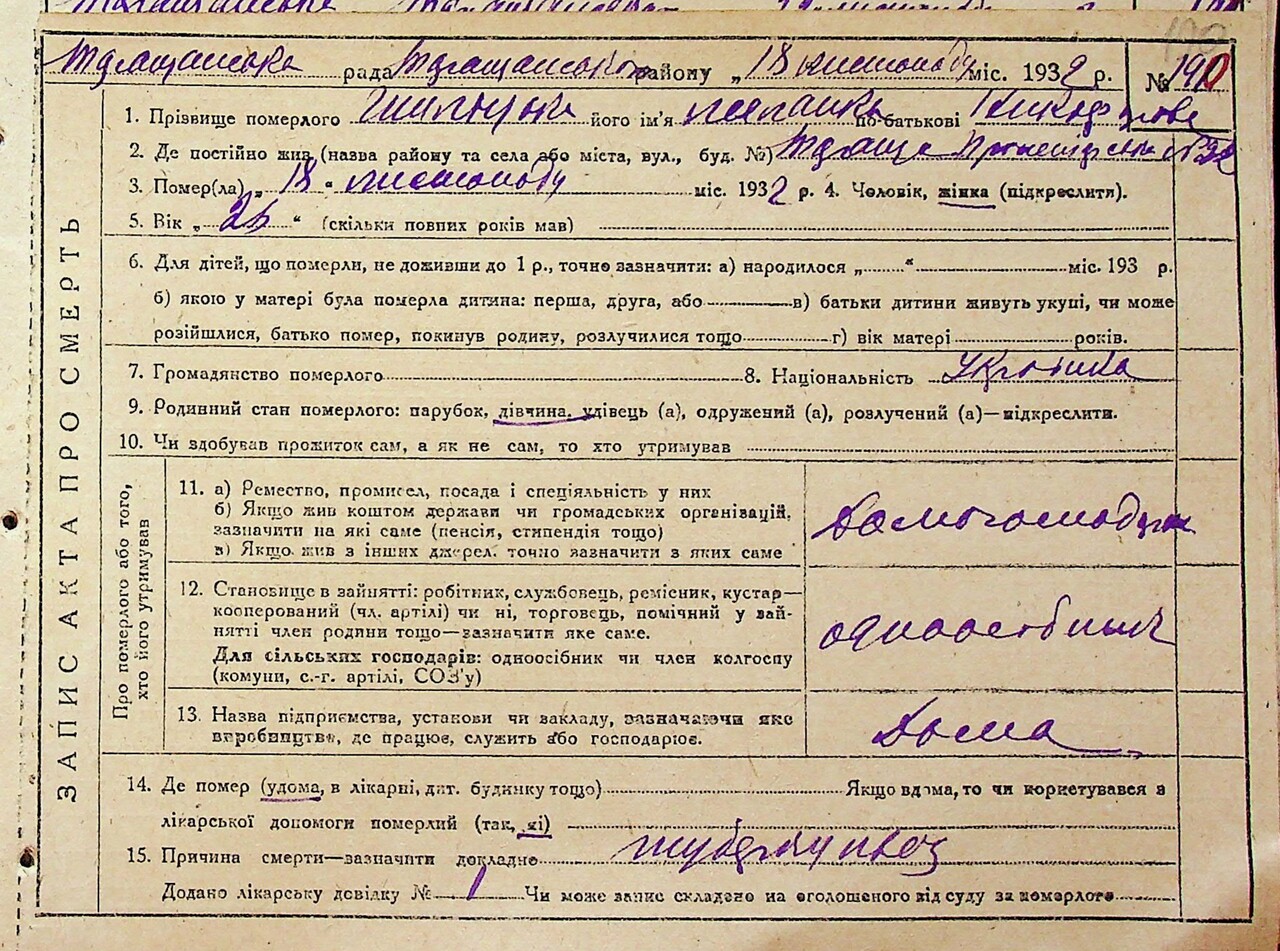 рада району „18 листопаду міс. 1932 р. № 190
1. Прізвище померлого його ім'я по-батькові
2. Де постійно жив (назва району та села або міста, вул., буд. №)
3. Помер(ла) „18“ листопаду міс. 1932 р. 4. Чоловік, жінка (підкреслити).
5. Вік „26“ (скільки повних років мав)
6. Для дітей, що померли, не доживши до 1 р., точно зазначити: а) народилося „......“ міс. 193 р.
б) якою у матері була померла дитина: перша, друга, або в) батьки дитини живуть укупі, чи може
розійшлися, батько помер, покинув родину, розлучилися тощо г) вік матері років.
7. Громадянство померлого 8. Національність Українка
9. Родинний стан померлого: парубок, дівчина, удівець (а), одружений (а), розлучений (а)—підкреслити.
10. Чи здобував прожиток сам, а як не сам, то хто утримував
ЗАПИС АКТА ПРО СМЕРТЬ
Про померлого або того,
хто його утримував
11. а) Ремество, промисел, посада і спеціяльність у них
б) Якщо жив коштом держави чи громадських організацій,
зазначити на які саме (пенсія, стипендія тощо)
в) Якщо жив з інших джерел, точно зазначити з яких саме
12. Становище в зайнятті: робітник, службовець, ремісник, кустар—
кооперований (чл. артілі) чи ні, торговець, помічний у зай-
нятті член родини тощо—зазначити яке саме.
Для сільських господарів: одноосібник чи член колгоспу
(комуни, с.-г. артілі, СОЗ'у)
13. Назва підприємства, установи чи закладу, зазначаючи яке
виробництво, де працює, служить або господарює.
Дома
14. Де помер (удома, в лікарні, дит. будинку тощо) Якщо вдома, то чи користувався з
лікарської допомоги померлий (так, ні)
15. Причина смерти—зазначити докладно туберкульоз
Додано лікарську довідку № 1 Чи може запис складено на оголошеного від суду за померлого